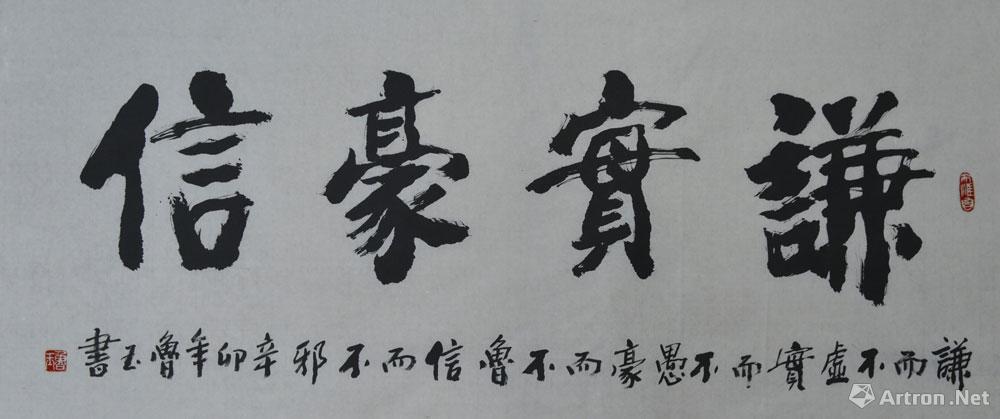 謙實豪信
謙而不虛實而不愚豪而不魯信而不邪辛卯年魯玉書
Artron.Net